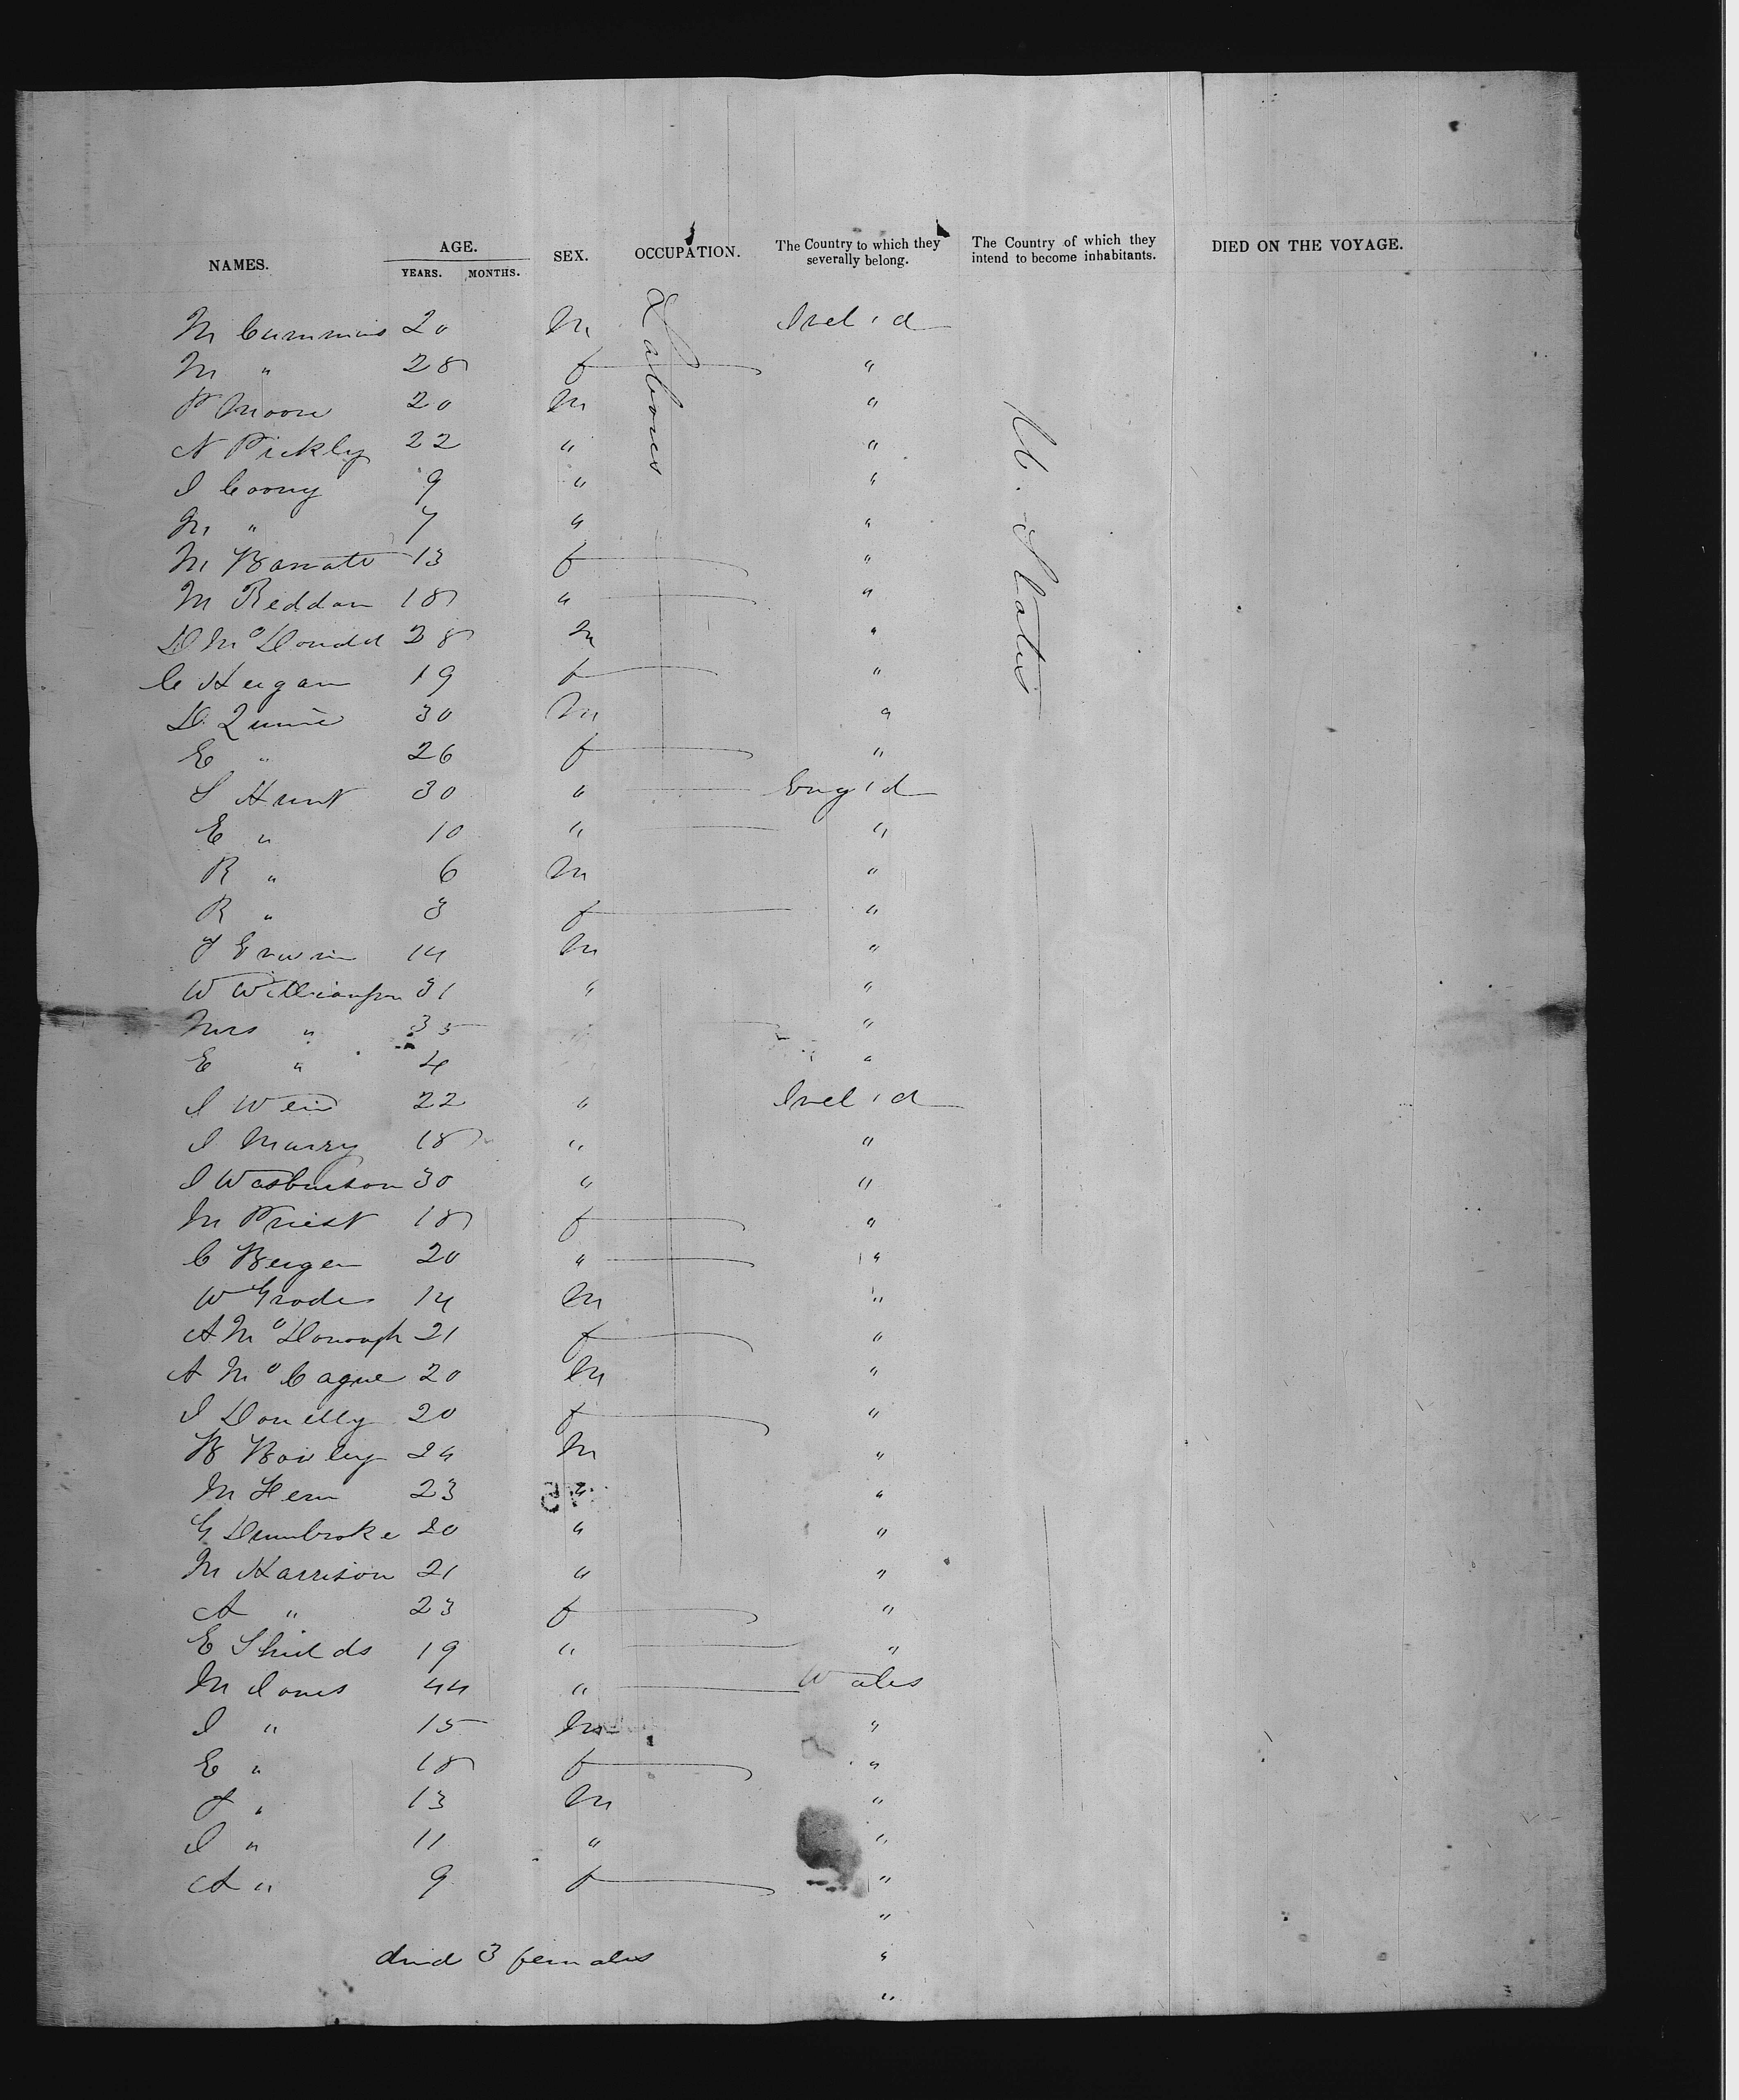 NAMES. AGE. YEARS. MONTHS. SEX. OCCUPATION. The Country to which they severally belong. The Country of which they intend to become inhabitants. DIED ON THE VOYAGE.
Labores
U. States
M Cummins 20 M Irel'd
M " 28 f "
P Moore 20 M "
N Prickly 22 " "
J Coony 9 " "
M " 7 " "
M Barratt 13 f "
M Reddan 18 " "
D McDondd 28 M "
C Keegan 19 f "
D. Quinn 30 M "
E " 26 f "
S Hunt 30 " Eng'd
E " 10 " "
R " 6 M "
R " 3 f "
J Erwin 14 M "
W Williamson 31 " "
Mrs " 35 "
E " 4 "
J Weir 22 " Irel'd
J Marry 18 " "
J Wasbuison 30 " "
M Priest 18 f "
C Bergen 20 " "
W Grades 14 M "
A McDonough 21 f "
A McCague 20 M "
J Donelly 20 f "
B Bowley 24 M "
M Hern 23 " "
G Dumbroke 20 " "
M Harrison 21 " "
A " 23 f "
E Shields 19 " "
M Jones 44 " Wales
J " 15 M "
E " 18 f "
J " 13 M "
J " 11 " "
A " 9 f "
"
died 3 females "
"